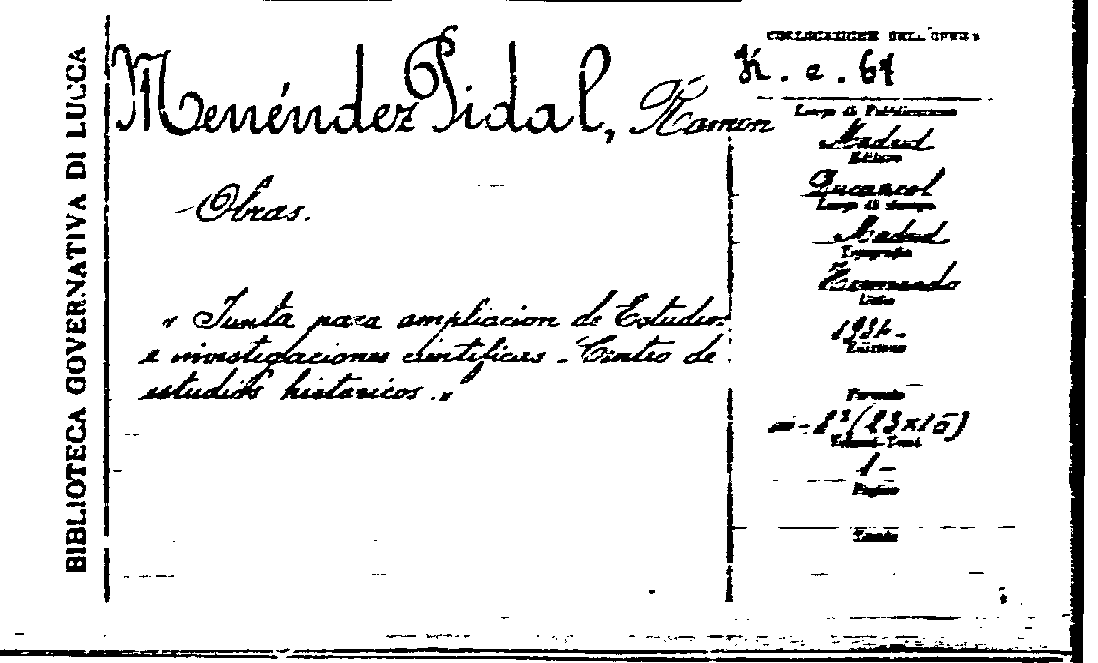 BIBLIOTECA GOVERNATIVA DI LUCCA
Menéndez Pidal, Ramon
Obras.
« Junta para ampliacion de Estudios
e investigaciones cientificas - Centro de
estudios historicos. »
COLLOCAZIONE DELL'OPERA
K. e. 67
Luogo di Pubblicazione
Madrid
Editore
Luogo di stampa
Madrid
Tipografia
Hernando
Edizione
Formato
in-8° (23×15)
Volumi-Tomi
1 -
Pagine
Tavole